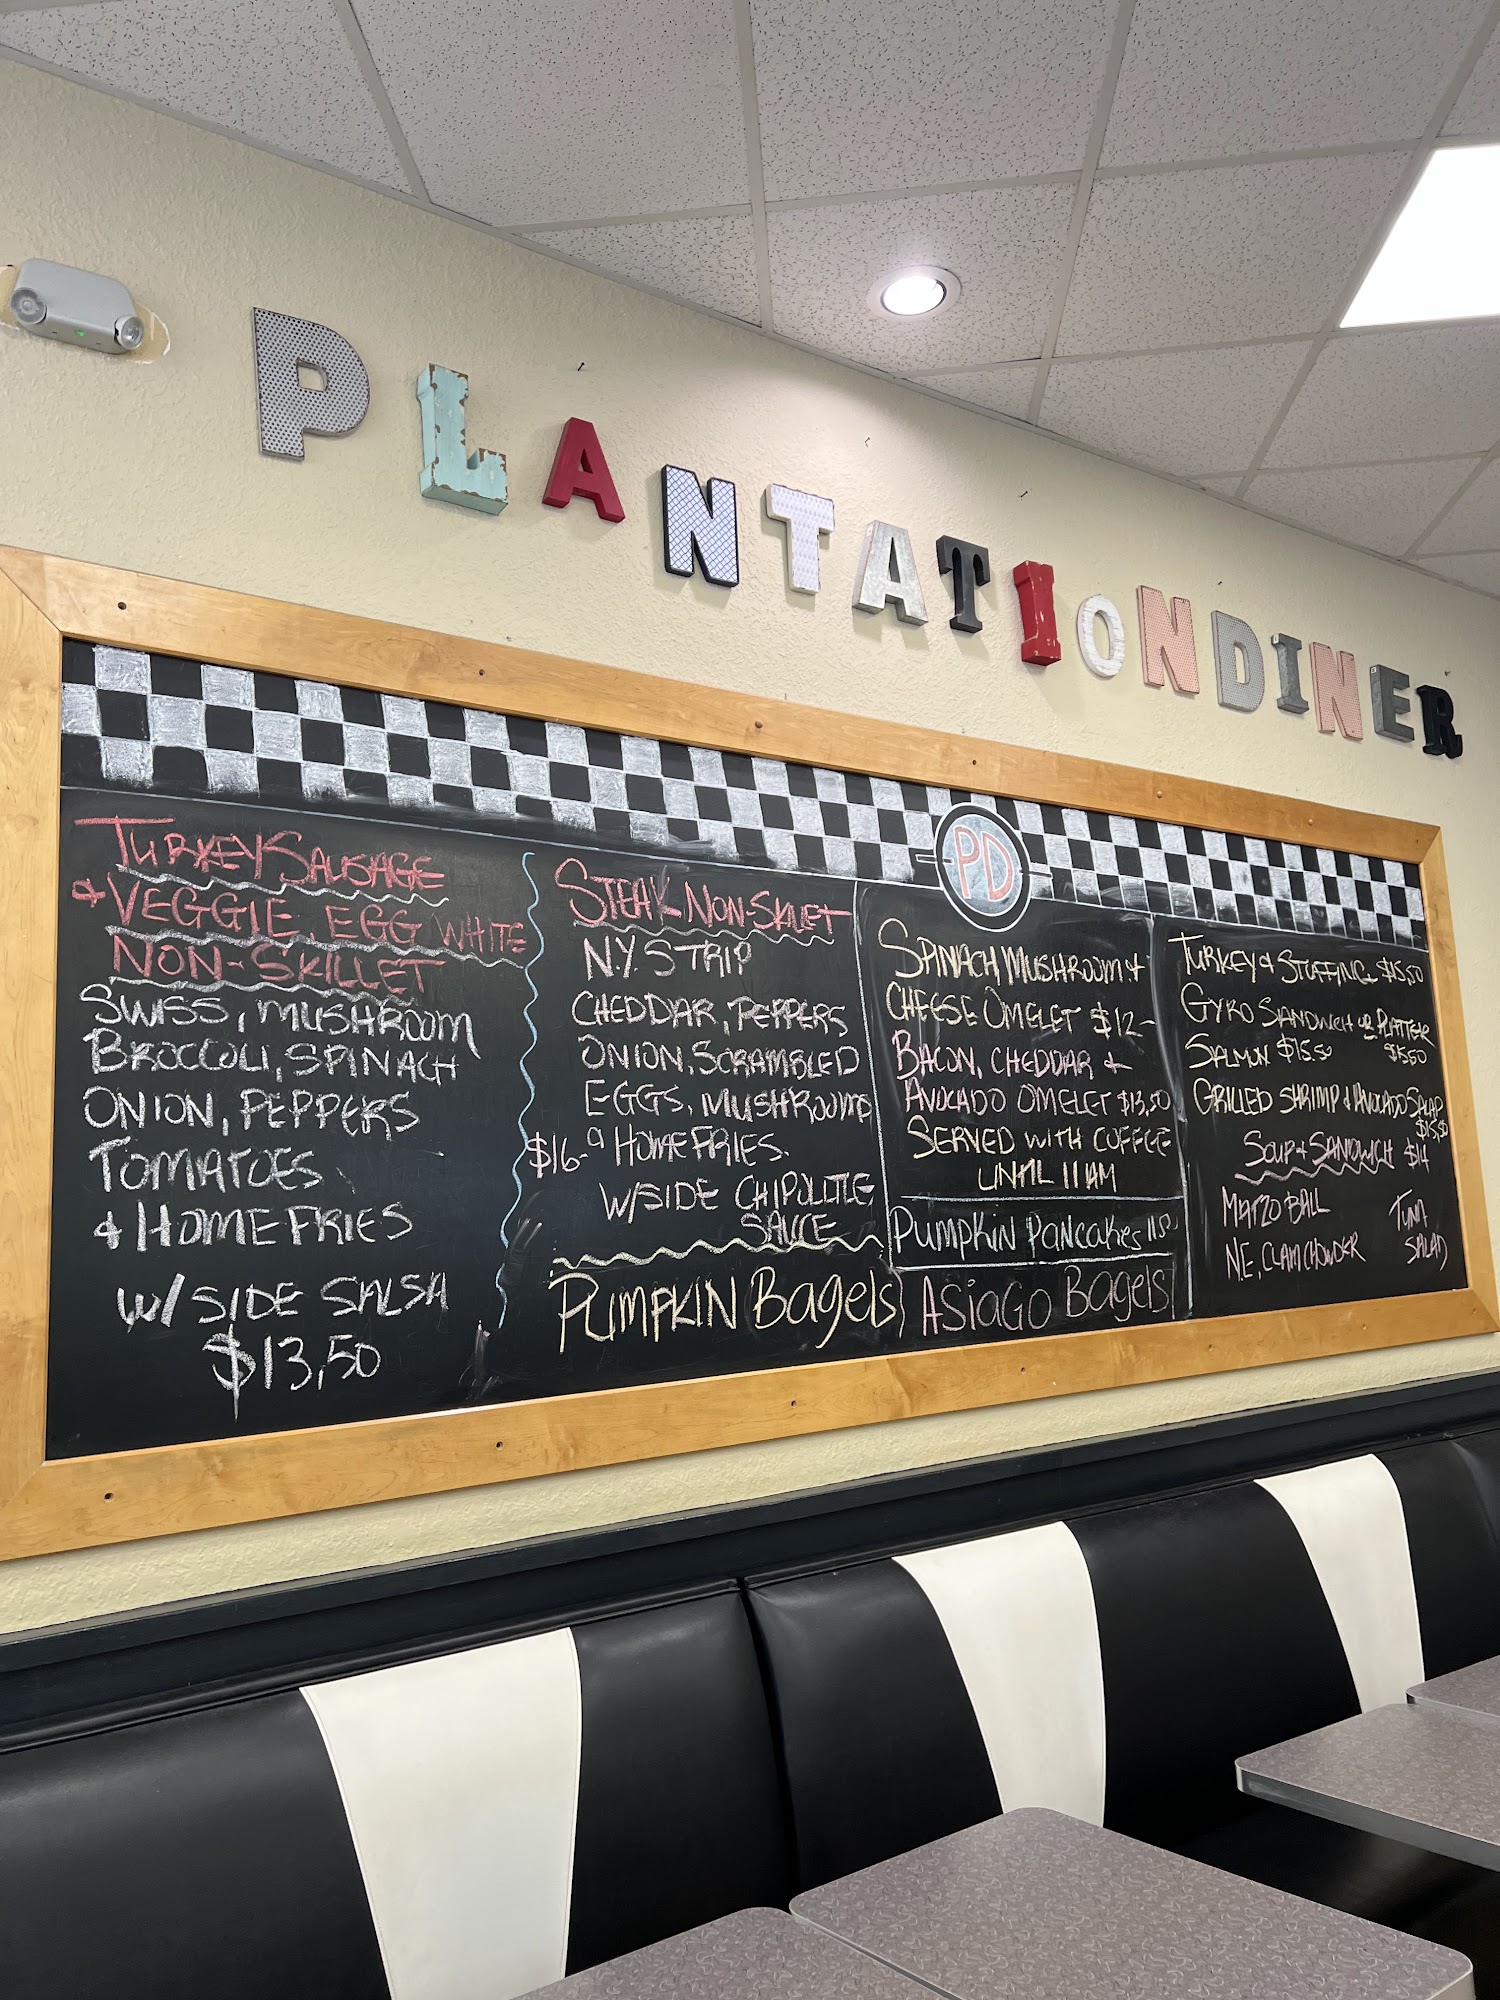 PLANTATION DINER
PD
TURKEY SAUSAGE
& VEGGIE, EGG WHITE
NON-SKILLET
SWISS, MUSHROOM
BROCCOLI, SPINACH
ONION, PEPPERS
TOMATOES
& HOMEFRIES
W/ SIDE SALSA
$13,50
STEAK NON-SKILLET
N.Y. STRIP
CHEDDAR, PEPPERS
ONION, SCRAMBLED
EGGS, MUSHROOMS
$16- HOMEFRIES.
W/SIDE CHIPOLLTLE
SAUCE
PUMPKIN Bagels
SPINACH, MUSHROOM &
CHEESE OMELET $12-
BACON, CHEDDAR &
AVOCADO OMELET $13,50
SERVED WITH COFFEE
UNTIL 11AM
PUMPKIN PANCAKES
ASIAGO Bagels
TURKEY & STUFFING $15,50
GYRO SANDWICH OR PLATTER
SALMON $15.50 $15.50
GRILLED SHRIMP & AVOCADO SALAD
$15,50
SOUP & SANDWICH $14
MATZO BALL TUNA
N.E. CLAM CHOWDER SALAD